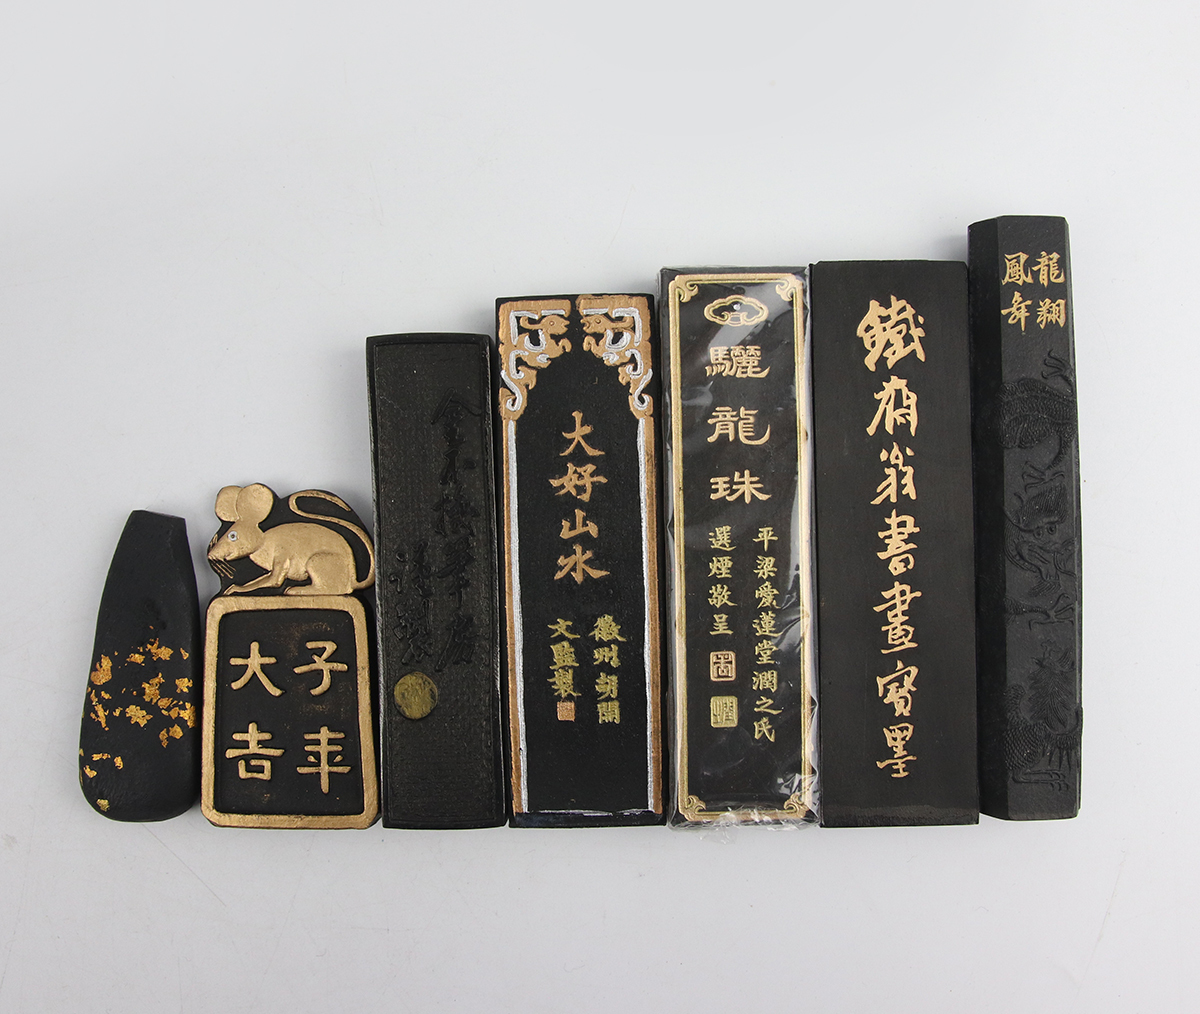 子年
大吉
大好山水
徽州胡開
文監製
驪龍珠
平梁愛蓮堂潤之氏
選煙敬呈
鐵齋翁書畫寶墨
龍翔
鳳舞